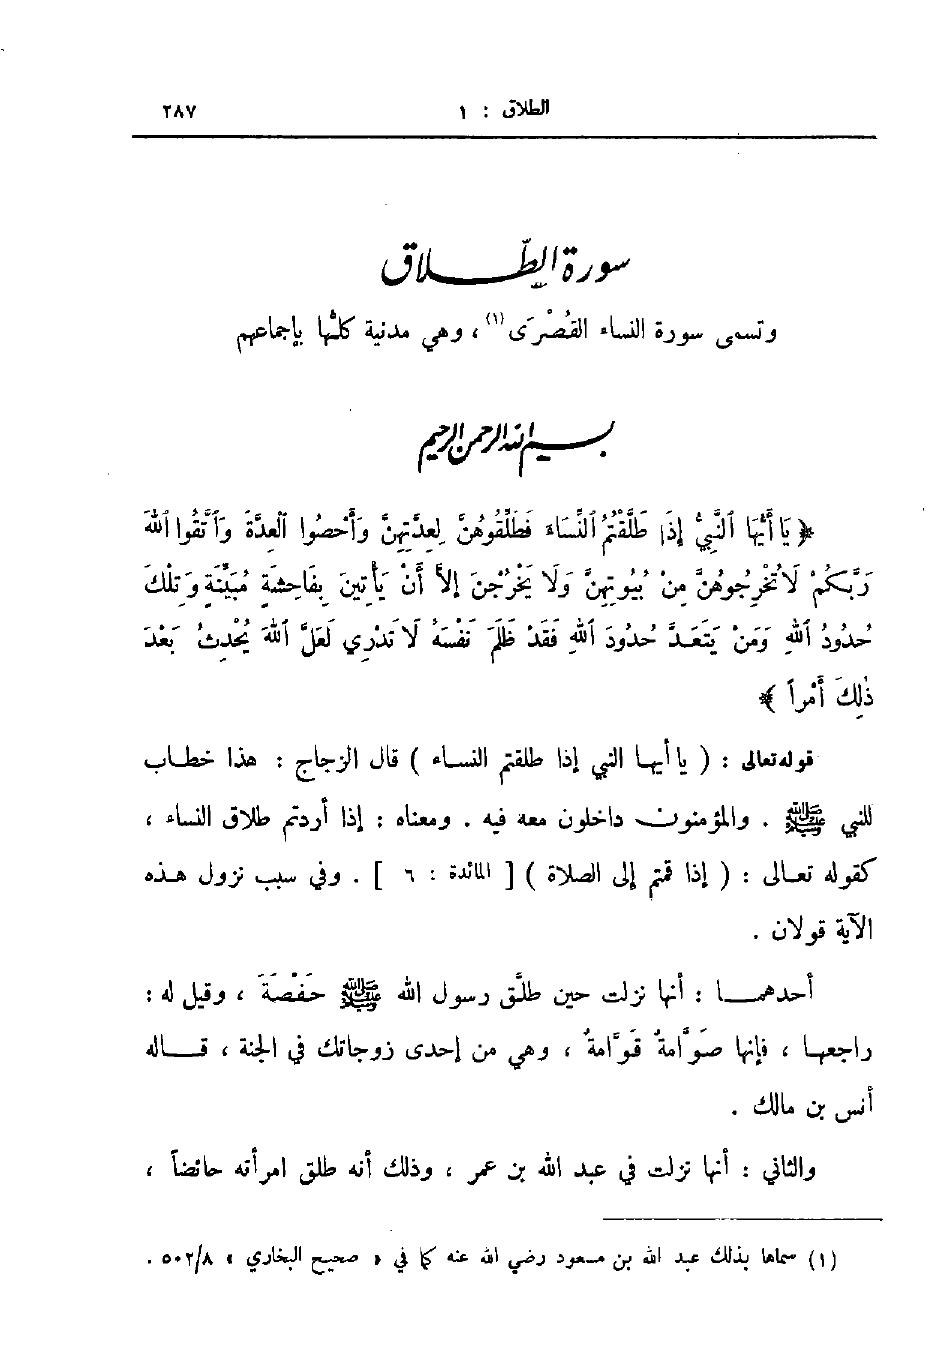 الطلاق : ١ ٢٨٧
سورة الطّلاق
وتسمى سورة النساء القُصْرَى(١) ، وهي مدنية كلّها بإجماعهم
بسم الله الرحمن الرحيم
﴿ يَا أَيُّهَا ٱلنَّبِيُّ إِذَا طَلَّقْتُمُ ٱلنِّسَاءَ فَطَلِّقُوهُنَّ لِعِدَّتِهِنَّ وَأَحْصُوا ٱلْعِدَّةَ وَٱتَّقُوا ٱللهَ
رَبَّكُمْ لَا تُخْرِجُوهُنَّ مِنْ بُيُوتِهِنَّ وَلَا يَخْرُجْنَ إِلَّا أَنْ يَأْتِينَ بِفَاحِشَةٍ مُبَيِّنَةٍ وَتِلْكَ
حُدُودُ ٱللهِ وَمَنْ يَتَعَدَّ حُدُودَ ٱللهِ فَقَدْ ظَلَمَ نَفْسَهُ لَا تَدْرِي لَعَلَّ ٱللهَ يُحْدِثُ بَعْدَ
ذٰلِكَ أَمْراً ﴾
قوله تعالى : ( يا أيها النبي إذا طلقتم النساء ) قال الزجاج : هذا خطاب
للنبي ﷺ . والمؤمنون داخلون معه فيه . ومعناه : إذا أردتم طلاق النساء ،
كقوله تعالى : ( إذا قمتم إلى الصلاة ) [ المائدة : ٦ ] . وفي سبب نزول هذه
الآية قولان .
أحدهما : أنها نزلت حين طلَّق رسول الله ﷺ حَفْصَةَ ، وقيل له :
راجعها ، فإنها صَوَّامةٌ قَوَّامةٌ ، وهي من إحدى زوجاتك في الجنة ، قاله
أنس بن مالك .
والثاني : أنها نزلت في عبد الله بن عمر ، وذلك أنه طلق امرأته حائضاً ،
(١) سماها بذلك عبد الله بن مسعود رضي الله عنه كما في « صحيح البخاري » ٥٠٢/٨ .